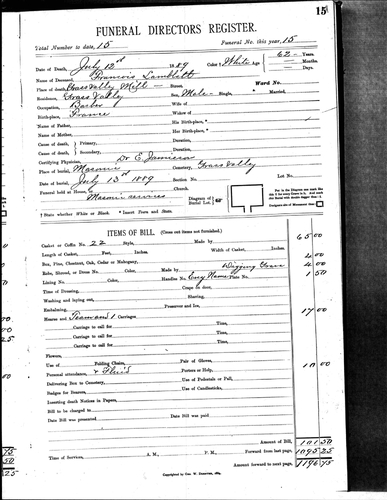 15
FUNERAL DIRECTORS REGISTER.
Total Number to date, 15 Funeral No. this year, 15
Date of Death, July 12th 1889 Color † White Age 62 Years.
Months.
Name of Deceased, Francois Days.
Place of death, Grass Valley Street, Ward No.
Residence, Grass Valley Sex, Male Single, * Married,
Occupation, Wife of
Birth-place, France Widow of
Name of Father, His Birth-place, †
Name of Mother, Her Birth-place, †
Cause of death, Primary, Duration,
Cause of death, Secondary, Duration,
Certifying Physician, Dr E. Jamieson
Place of burial, Masonic Cemetery, Grass Valley
Date of burial, July 13th 1889 Section No. Lot No.
Funeral held at House Church.
Masonic services
Diagram of Burial Lot.
† State whether White or Black. * Insert Town and State.
ITEMS OF BILL. (Cross out items not furnished.)
Casket or Coffin No. 22 Style, Made by 65.00
Length of Casket, Feet, Inches. Width of Casket, Inches.
Box, Pine, Chestnut, Oak, Cedar or Mahogany, 4.00
Robe, Shroud, or Dress No. Color, Made by Digging Grave 4.00
Lining No. Color, Handles No. Eng Name Plate No. 1.50
Time of Dressing, Crape on door,
Washing and laying out, Shaving,
Embalming, Preserver and Ice,
Hearse and Team and 1 Carriages. 17.00
Carriage to call for Time,
Carriage to call for Time,
Carriage to call for Time,
Flowers,
Use of Folding Chairs, Pair of Gloves,
Personal attendance, & Fluid Porters or Holy, 10 00
Delivering Box to Cemetery, Use of Pedestals or Pall,
Badges for Bearers, Use of Candlesticks,
Inserting death Notices in Papers,
Bill to be charged to
Date Bill was presented Date Bill was paid
Amount of Bill, 101.50
Time of Services, A. M., P. M. Forward from last page, 1095.25
Amount forward to next page, 1196.75